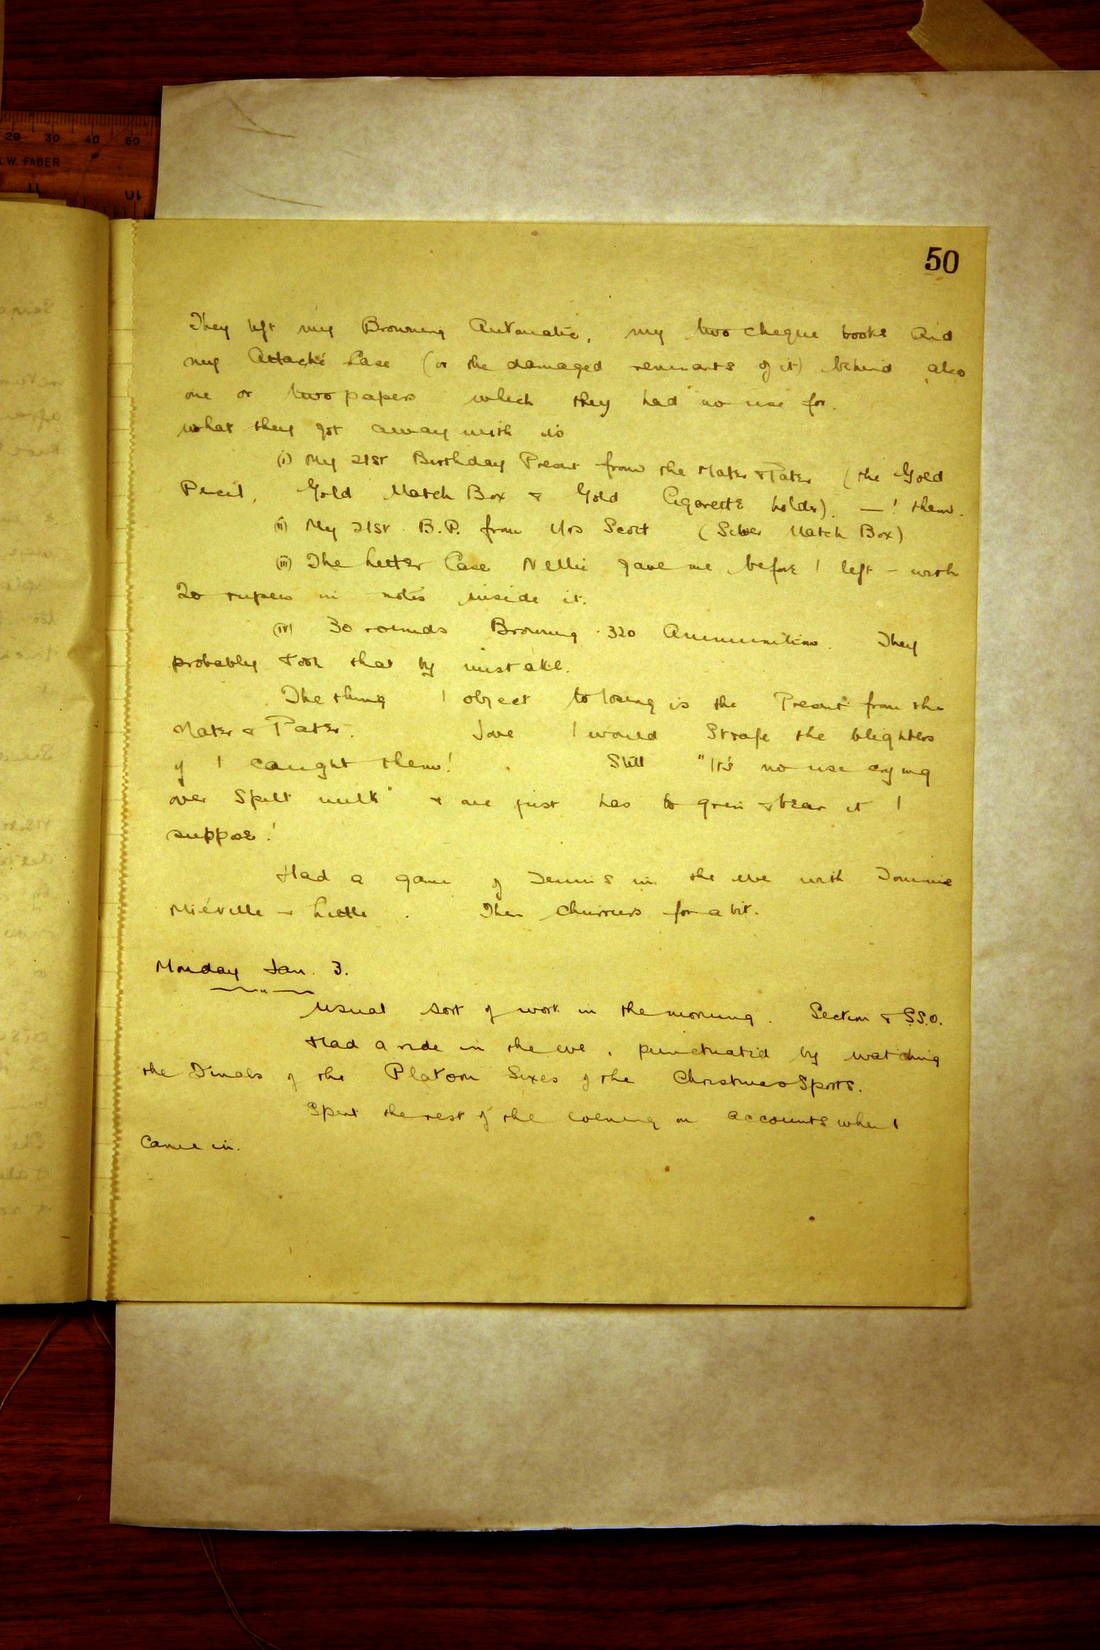 20 30 40 50
W. FABER
11
50
They left my Browning Automatic, my two cheque books and
my Attaché Case (or the damaged remnants of it) behind also
one or two papers which they had no use for.
what they got away with is
(i) My 21st Birthday Present from the Mater & Pater (the Gold
Pencil, Gold Match Box & Gold Cigarette holder). —! them.
(ii) My 21st B.P. from Mrs Scott (Silver Match Box)
(iii) The Letter Case Nellie gave me before I left - with
20 rupees in notes inside it.
(iv) 30 rounds Browning .320 Ammunition. They
probably took that by mistake.
The thing I object to losing is the Present from the
Mater & Pater. Jove I would Strafe the blighters
if I caught them! Still "It's no use crying
over Spilt milk" & one just has to grin & bear it I
suppose!
Had a game of Tennis in the eve with Tommie
Miéville & Little. Then Chummers for a bit.
Monday Jan. 3.
Usual sort of work in the morning. Section & S.S.O.
Had a ride in the eve, punctuated by watching
the Finals of the Platoon Sixes of the Christmas Sports.
Spent the rest of the evening on accounts when I
came in.